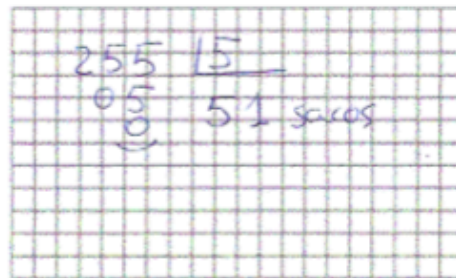 255 5
05 51 sacos
0